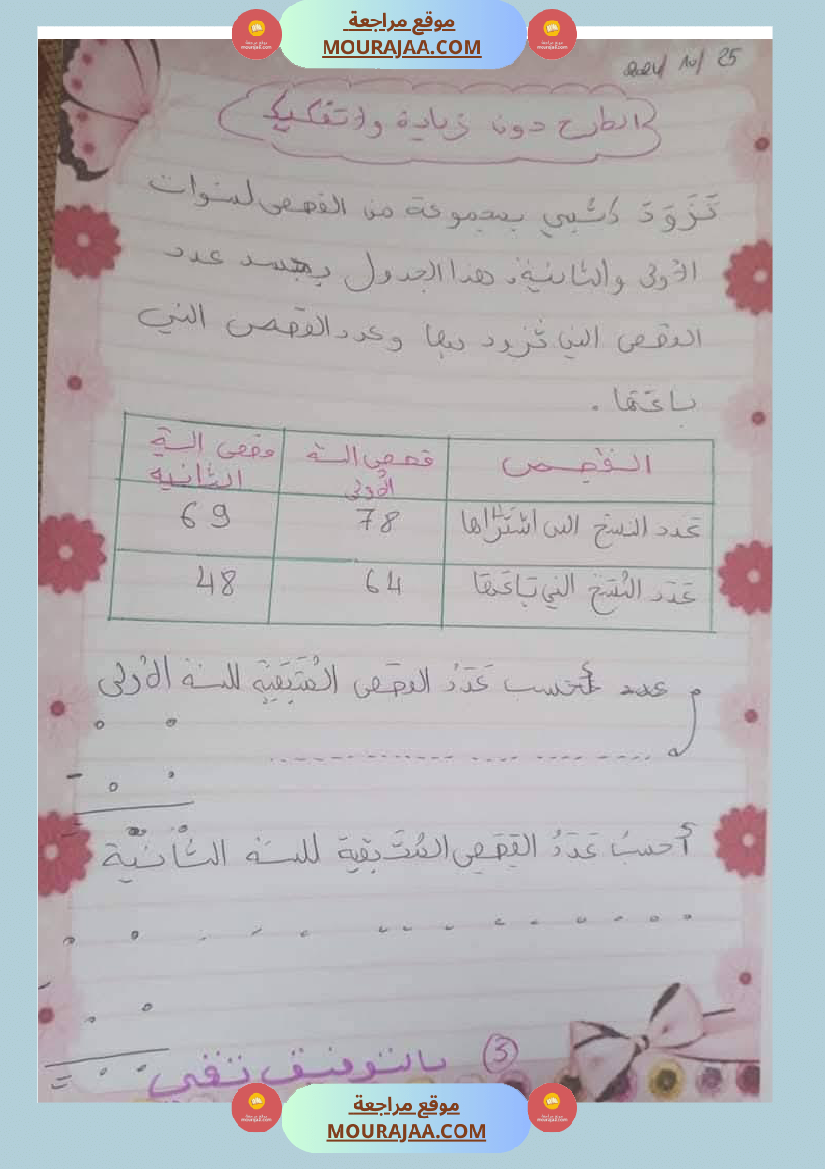 موقع مراجعة
MOURAJAA.COM
25 /10/ 2024
الطرح دون زيادة ولا تفكيك
تَزَوَّدَ كتبي بمجموعة من القصص لسنوات
الأولى والثانية. هذا الجدول يجسد عدد
القصص التي تزود بها وعدد القصص التي
باعها.
القصص
قصص السنة الأولى
قصص السنة الثانية
عدد النسخ التي اشتراها
78
69
عدد النسخ التي باعها
64
48
عدد أحسب عَدَدُ القصص المُتَبَقِيَة للسنة الأولى
أحسبُ عَدَدُ القِصَصِ المُتَبَقِية للسنة الثَّانية
بالتوفيق
3
موقع مراجعة
MOURAJAA.COM